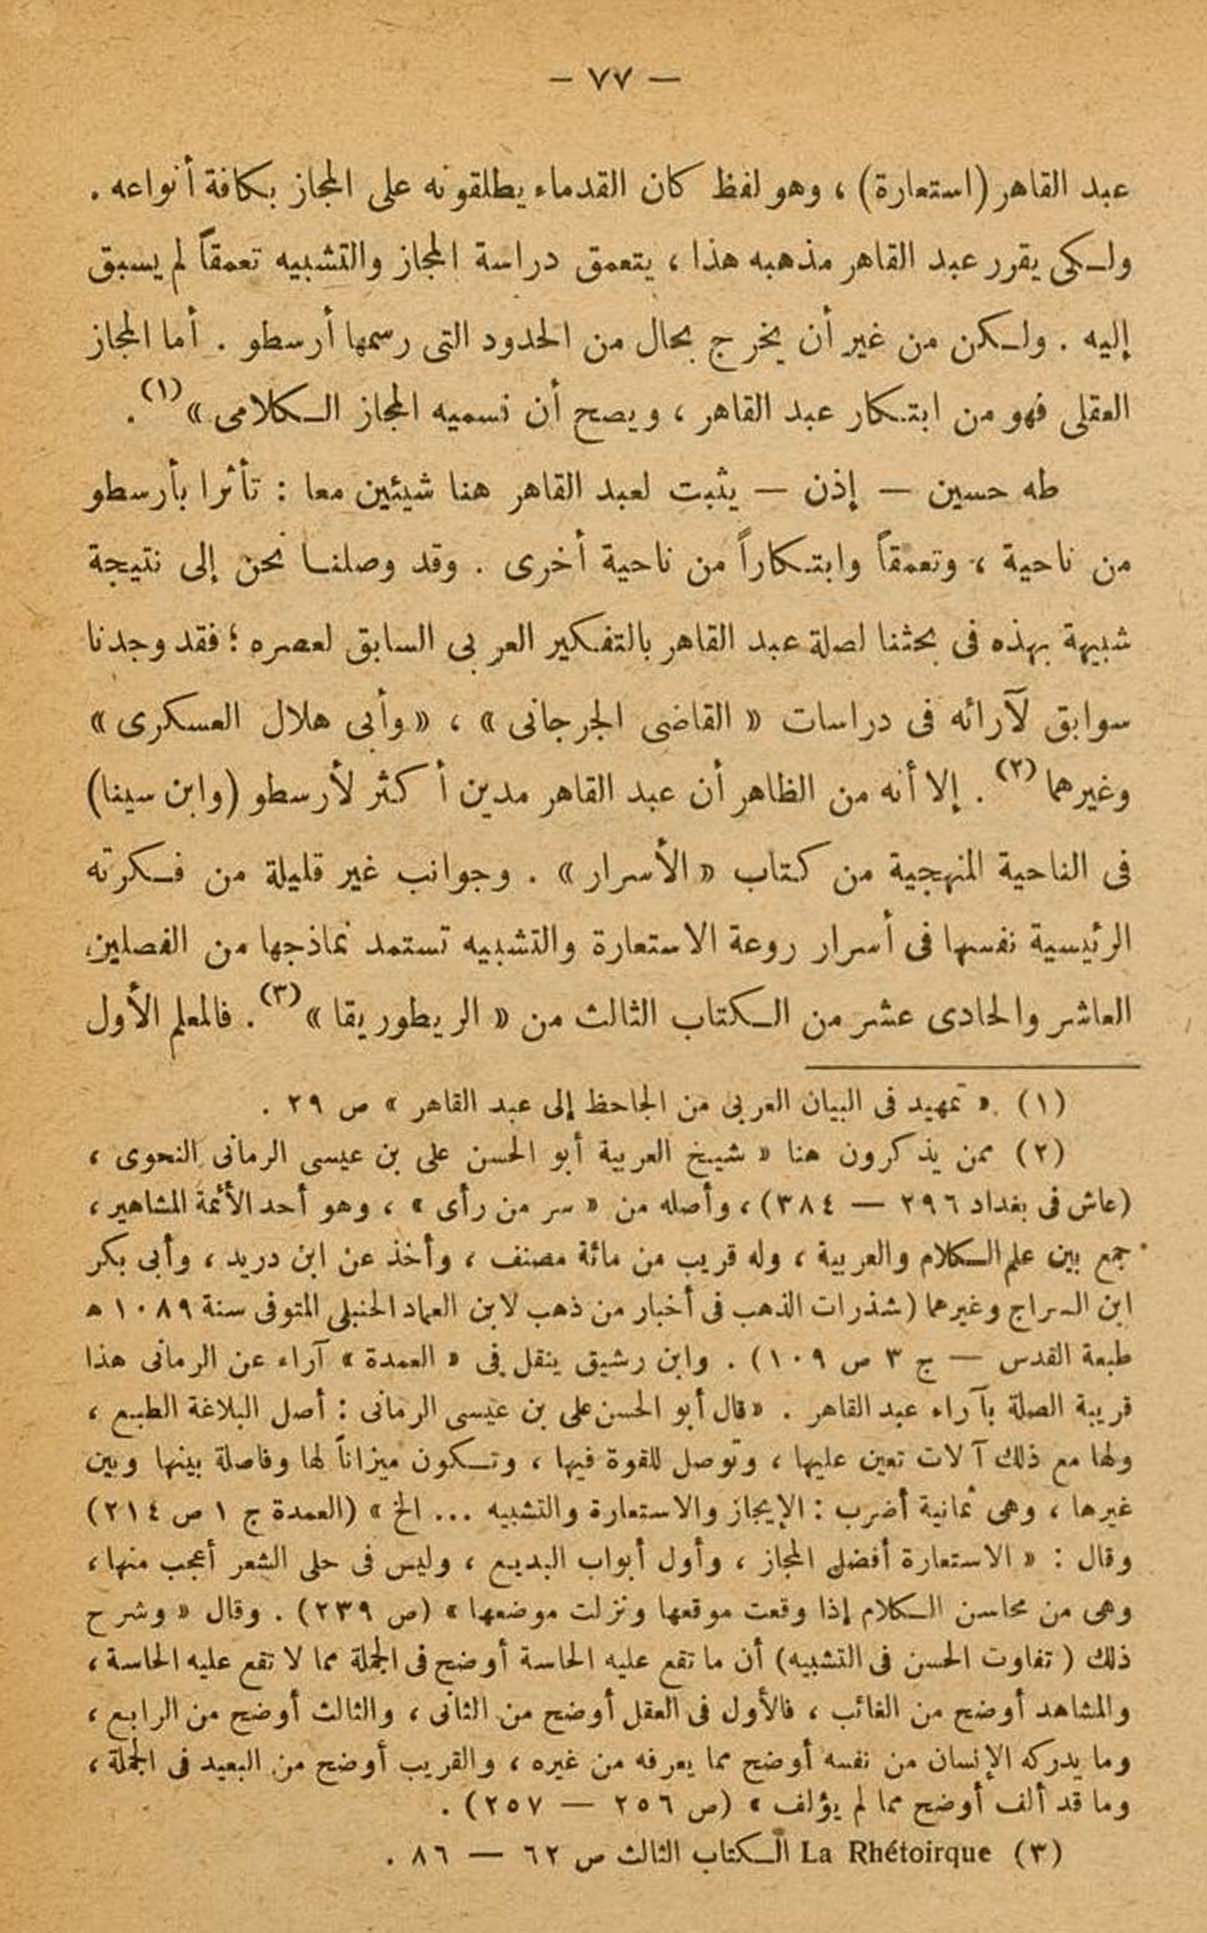 — ٧٧ —
عبد القاهر (استعارة) ، وهو لفظ كان القدماء يطلقونه على المجاز بكافة أنواعه .
ولكى يقرر عبد القاهر مذهبه هذا ، يتعمق دراسة المجاز والتشبيه تعمقاً لم يسبق
إليه . ولكن من غير أن يخرج بحال من الحدود التى رسمها أرسطو . أما المجاز
العقلى فهو من ابتكار عبد القاهر ، ويصح أن نسميه المجاز الكلامى » (١) .
طه حسين — إذن — يثبت لعبد القاهر هنا شيئين معا : تأثرا بأرسطو
من ناحية ، وتعمقاً وابتكاراً من ناحية أخرى . وقد وصلنا نحن إلى نتيجة
شبيهة بهذه فى بحثنا لصلة عبد القاهر بالتفكير العربى السابق لعصره ؛ فقد وجدنا
سوابق لآرائه فى دراسات « القاضى الجرجانى » ، « وأبى هلال العسكرى »
وغيرهما (٢) . إلا أنه من الظاهر أن عبد القاهر مدين أكثر لأرسطو (وابن سينا)
فى الناحية المنهجية من كتاب « الأسرار » . وجوانب غير قليلة من فكرته
الرئيسية نفسها فى أسرار روعة الاستعارة والتشبيه تستمد نماذجها من الفصلين
العاشر والحادى عشر من الكتاب الثالث من « الريطوريقا » (٣) . فالمعلم الأول
(١) « تمهيد فى البيان العربى من الجاحظ إلى عبد القاهر » ص ٢٩ .
(٢) ممن يذكرون هنا « شيخ العربية أبو الحسن على بن عيسى الرمانى النحوى ،
(عاش فى بغداد ٢٩٦ — ٣٨٤) ، وأصله من « سر من رأى » ، وهو أحد الأئمة المشاهير ،
جمع بين علم الكلام والعربية ، وله قريب من مائة مصنف ، وأخذ عن ابن دريد ، وأبى بكر
ابن السراج وغيرهما (شذرات الذهب فى أخبار من ذهب لابن العماد الحنبلى المتوفى سنة ١٠٨٩ ه
طبعة القدس — ج ٣ ص ١٠٩) . وابن رشيق ينقل فى « العمدة » آراء عن الرمانى هذا
قريبة الصلة بآراء عبد القاهر . « قال أبو الحسن على بن عيسى الرمانى : أصل البلاغة الطبع ،
ولها مع ذلك آلات تعين عليها ، وتوصل للقوة فيها ، وتكون ميزاناً لها وفاصلة بينها وبين
غيرها ، وهى ثمانية أضرب : الإيجاز والاستعارة والتشبيه ... الخ » (العمدة ج ١ ص ٢١٤)
وقال : « الاستعارة أفضل المجاز ، وأول أبواب البديع ، وليس فى حلى الشعر أعجب منها ،
وهى من محاسن الكلام إذا وقعت موقعها ونزلت موضعها » (ص ٢٣٩) . وقال « وشرح
ذلك ( تفاوت الحسن فى التشبيه) أن ما تقع عليه الحاسة أوضح فى الجملة مما لا تقع عليه الحاسة ،
والمشاهد أوضح من الغائب ، فالأول فى العقل أوضح من الثانى ، والثالث أوضح من الرابع ،
وما يدركه الإنسان من نفسه أوضح مما يعرفه من غيره ، والقريب أوضح من البعيد فى الجملة ،
وما قد ألف أوضح مما لم يؤلف » (ص ٢٥٦ — ٢٥٧) .
(٣) La Rhétoirque الكتاب الثالث ص ٦٢ — ٨٦ .